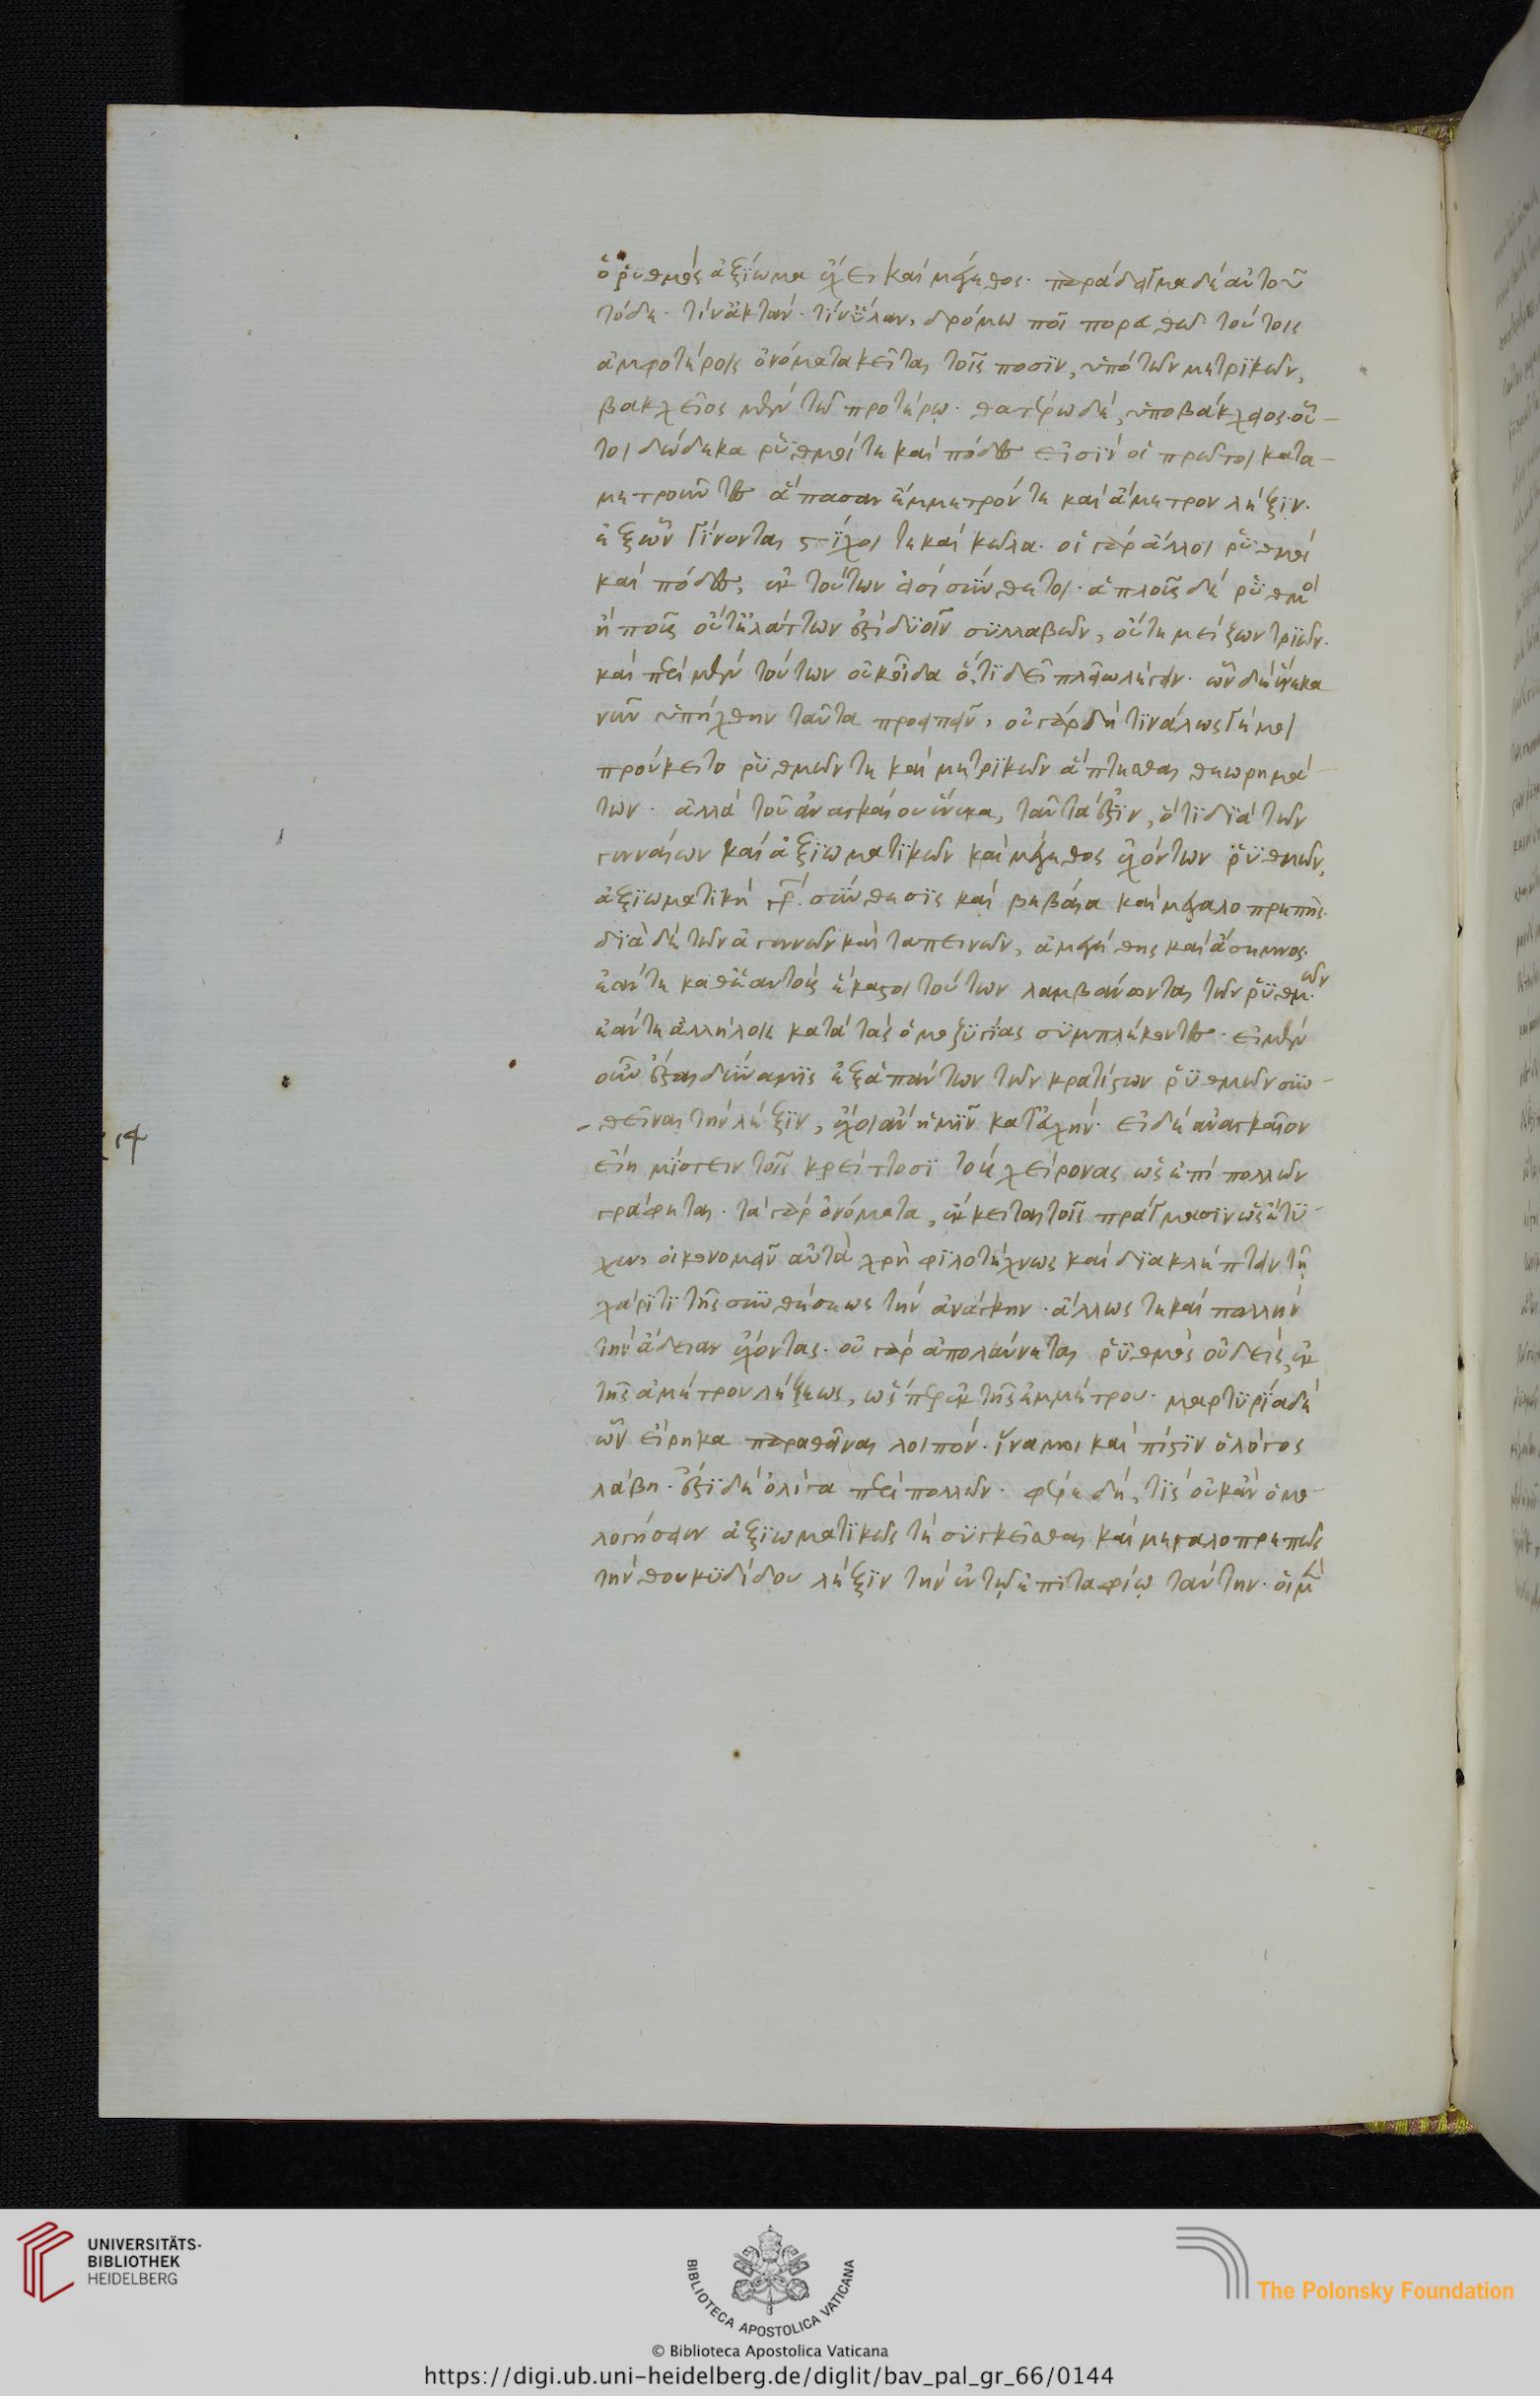 ὁ ῥυθμὸς ἀξίωμα ἔχει καὶ μέγεθος. παράδειγμα δὲ αὐτοῦ
τόδε. τίν ἀκτὰν. τίν ὕλαν, δρόμω ποῖ πορευθῶ τούτοις
ἀμφοτέροις ὀνόματα κεῖται τοῖς ποσὶν, ὑπὸ τῶν μετρικῶν,
βακχεῖος μὲν τῶ προτέρω. θατέρω δὲ, ὑποβάκχειος. οὗ-
τοι δώδεκα ῥυθμοί τε καὶ πόδες εἰσὶν οἱ πρῶτοι κατα-
μετροῦντες ἅπασαν ἔμμετρόν τε καὶ ἄμετρον λέξιν.
ἐξ ὧν γίνονται στίχοι τε καὶ κῶλα. οἱ γὰρ ἄλλοι ῥυθμοὶ
καὶ πόδες, ἐκ τούτων εἰσὶ σύνθετοι. ἁπλοῦς δὲ ῥυθμὸ
ἢ ποῦς οὔτ ἐλάττων ἐστὶ δυοῖν συλλαβῶν, οὔτε μείζων τριῶν.
καὶ περὶ μὲν τούτων οὐκ οἶδα ὅ,τι δεῖ πλείω λέγειν. ὧν δὲ ἕνεκα
νῦν ὑπήχθην ταῦτα προειπεῖν, οὐ γὰρ δὴ τὴν ἄλλως γέ μοι
προύκειτο ῥυθμῶν τε καὶ μετρικῶν ἅπτεσθαι θεωρημά-
των. ἀλλὰ τοῦ ἀναγκαίου ἕνεκα, ταῦτά ἐστιν, ὅτι διὰ τῶν
γενναίων καὶ ἀξιωματικῶν καὶ μέγεθος ἐχόντων ῥυθμῶν,
ἀξιωματικὴ γίνεται σύνθεσις καὶ βεβαία καὶ μεγαλοπρεπὴς.
διὰ δὲ τῶν ἀγεννῶν καὶ ταπεινῶν, ἀμεγέθης καὶ ἄσεμνος.
ἐάν τε καθ ἑαυτοὺς ἕκαστοι τούτων λαμβάνωνται τῶν ῥυθμῶν
ἐάν τε ἀλλήλοις κατὰ τὰς ὁμοζυγίας συμπλέκοντες. εἰ μὲν
οὖν ἔσται δύναμις ἐξ ἁπάντων τῶν κρατίστων ῥυθμῶν συν-
θεῖναι τὴν λέξιν, ἔχοι ἂν ἡμῖν κατ εὐχήν. εἰ δὲ ἀναγκαῖον
εἴη μίσγειν τοῖς κρείττοσι τοὺς χείρονας ὡς ἐπὶ πολλῶν
γράφεται. τὰ γὰρ ὀνόματα, ἔκκειται τοῖς πράγμασιν ὡς ἔτυ-
χεν, οἰκονομεῖν αὐτὰ χρὴ φιλοτέχνως καὶ διακλέπτειν τῇ
χάριτι τῆς συνθέσεως τὴν ἀνάγκην. ἄλλως τε καὶ πολλὴν
τὴν ἄδειαν ἔχοντας. οὐ γὰρ ἀπολαύνεται ῥυθμὸς οὐδεὶς, ἐκ
τῆς ἀμέτρου λέξεως, ὥσπερ ἐκ τῆς ἐμμέτρου. μαρτυρία δὲ
ὧν εἴρηκα παραθεῖναι λοιπόν. ἵνα μοι καὶ πίστιν ὁ λόγος
λάβη. ἔσται δὲ ὀλίγα περὶ πολλῶν. φέρε δὴ, τίς οὐκ ἂν ὁμο-
λογήσειεν ἀξιωματικῶς τε συγκεῖσθαι καὶ μεγαλοπρεπῶς
τὴν θουκυδίδου λέξιν τὴν ἐν τῷ ἐπιταφίῳ ταύτην. οἱ μὲν
UNIVERSITÄTS-
BIBLIOTHEK
HEIDELBERG
BIBLIOTECA APOSTOLICA VATICANA
The Polonsky Foundation
© Biblioteca Apostolica Vaticana
https://digi.ub.uni-heidelberg.de/diglit/bav_pal_gr_66/0144